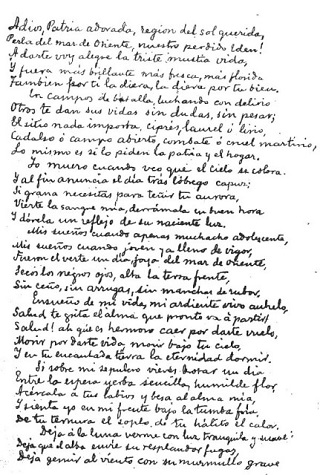 Adios, Patria adorada, region del sol querida,
Perla del mar de Oriente, nuestro perdido Eden!
A darte voy alegre la triste mustia vida,
Y fuera más brillante más fresca, más florida
Tambien por ti la diera, la diera por tu bien.
En campos de batalla, luchando con delirio
Otros te dan sus vidas sin dudas, sin pesar;
El sitio nada importa, ciprés, laurel ó lirio,
Cadalso ó campo abierto, combate ó cruel martirio,
Lo mismo es si lo piden la patria y el hogar.
Yo muero cuando veo que el cielo se colora
Y al fin anuncia el dia trás lóbrego capuz;
Si grana necesitas para teñir tu aurora,
Vierte la sangre mia, derrámala en buen hora
Y dórela un reflejo de su naciente luz.
Mis sueños cuando apenas muchacho adolescente,
Mis sueños cuando joven ya lleno de vigor,
Fueron el verte un dia, joya del mar de oriente,
Secos los negros ojos, alta la tersa frente,
Sin ceño, sin arrugas, sin manchas de rubor.
Ensueño de mi vida, mi ardiente vivo anhelo,
Salud te grita el alma que pronto va á partir!
Salud! ah que es hermoso caer por darte vuelo,
Morir por darte vida, morir bajo tu cielo,
Y en tu encantada tierra la eternidad dormir.
Si sobre mi sepulcro vieres brotar un dia
Entre la espesa yerba sencilla, humilde flor,
Acércala á tus labios y besa al alma mia,
Y sienta yo en mi frente bajo la tumba fria
De tu ternura el soplo, de tu hálito el calor.
Deja á la luna verme con luz tranquila y suave;
Deja que el alba envie su resplandor fugaz,
Deja gemir al viento con su murmullo grave